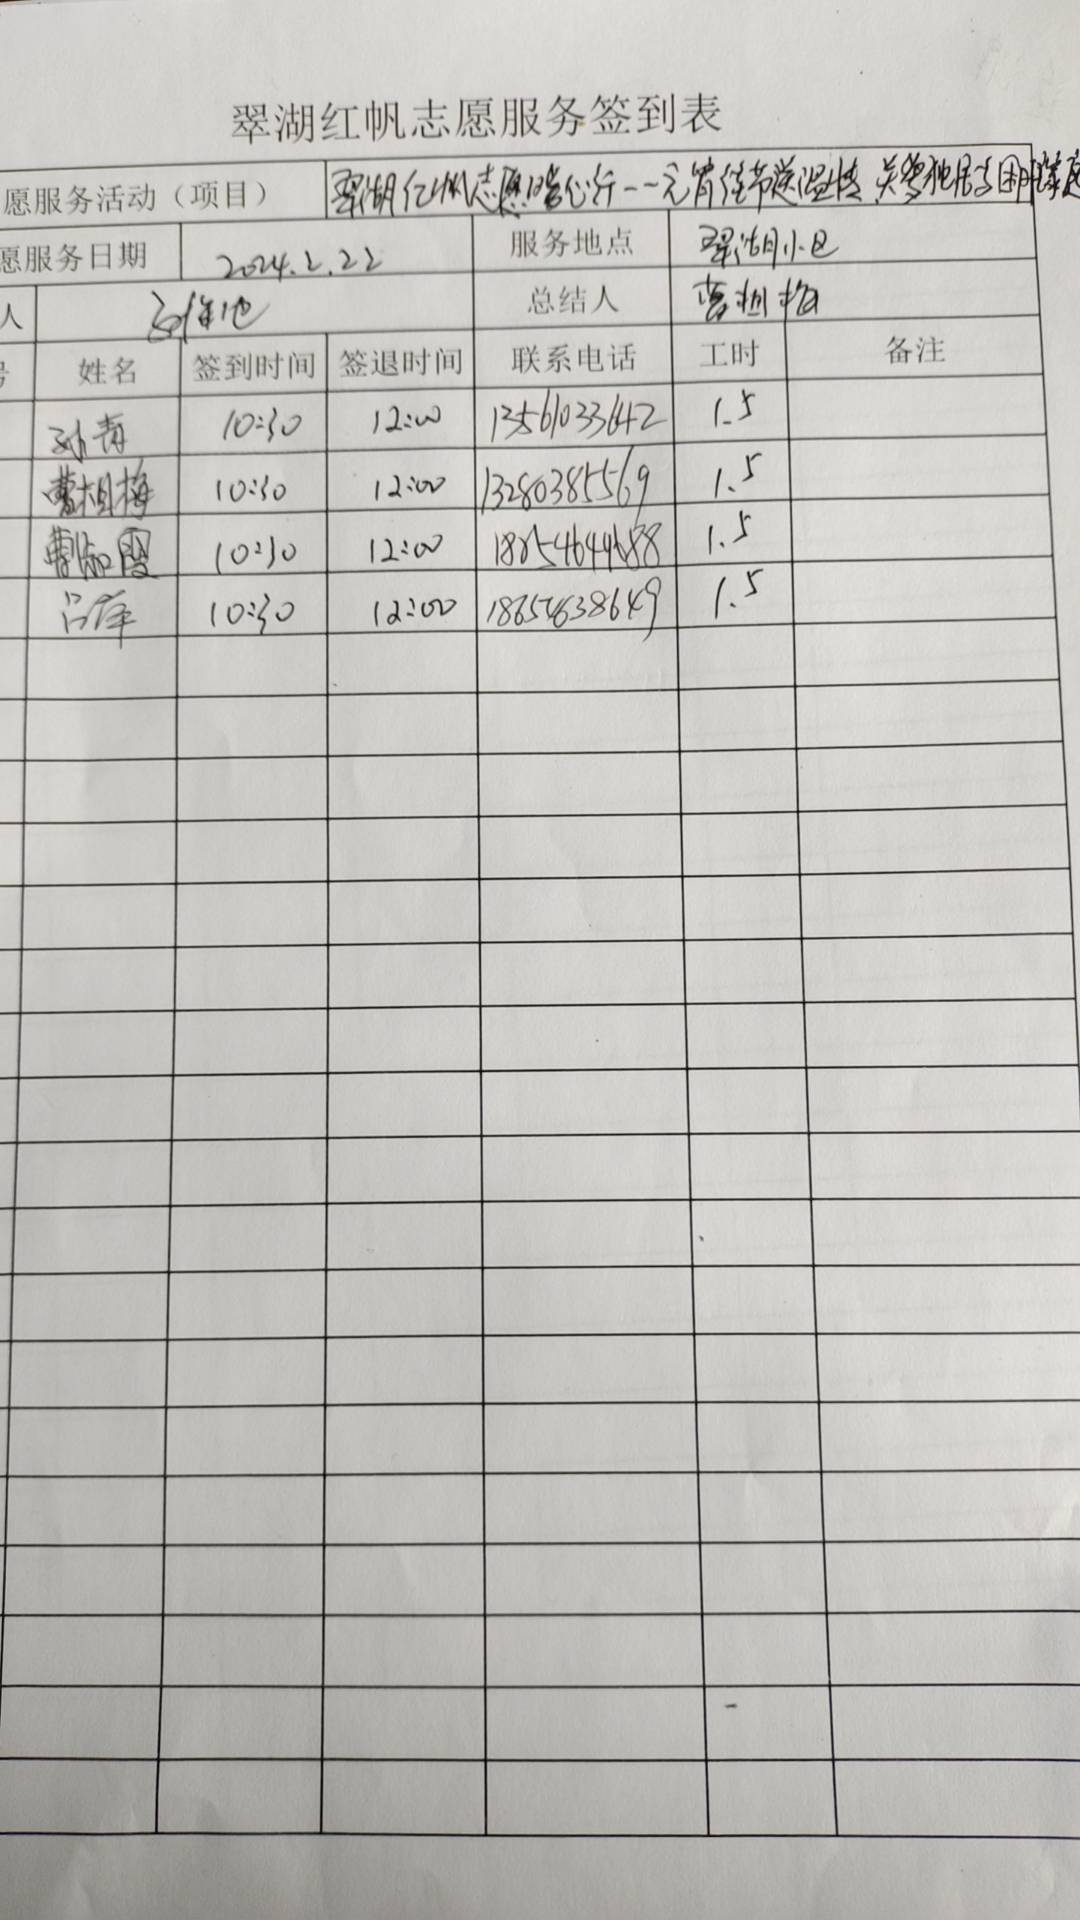 翠湖红帆志愿服务签到表
愿服务活动（项目） 翠湖红帆志愿 行--元宵佳节送温情 关爱独居与困难家庭
愿服务日期 2024.2.22 服务地点 翠湖小区
人 总结人 曹相梅
号 姓名 签到时间 签退时间 联系电话 工时 备注
孙青 10:30 12:00 13561033642 1.5
曹相梅 10:30 12:00 13280385569 1.5
曹 霞 10:30 12:00 1.5
吕萍 10:30 12:00 18654638649 1.5